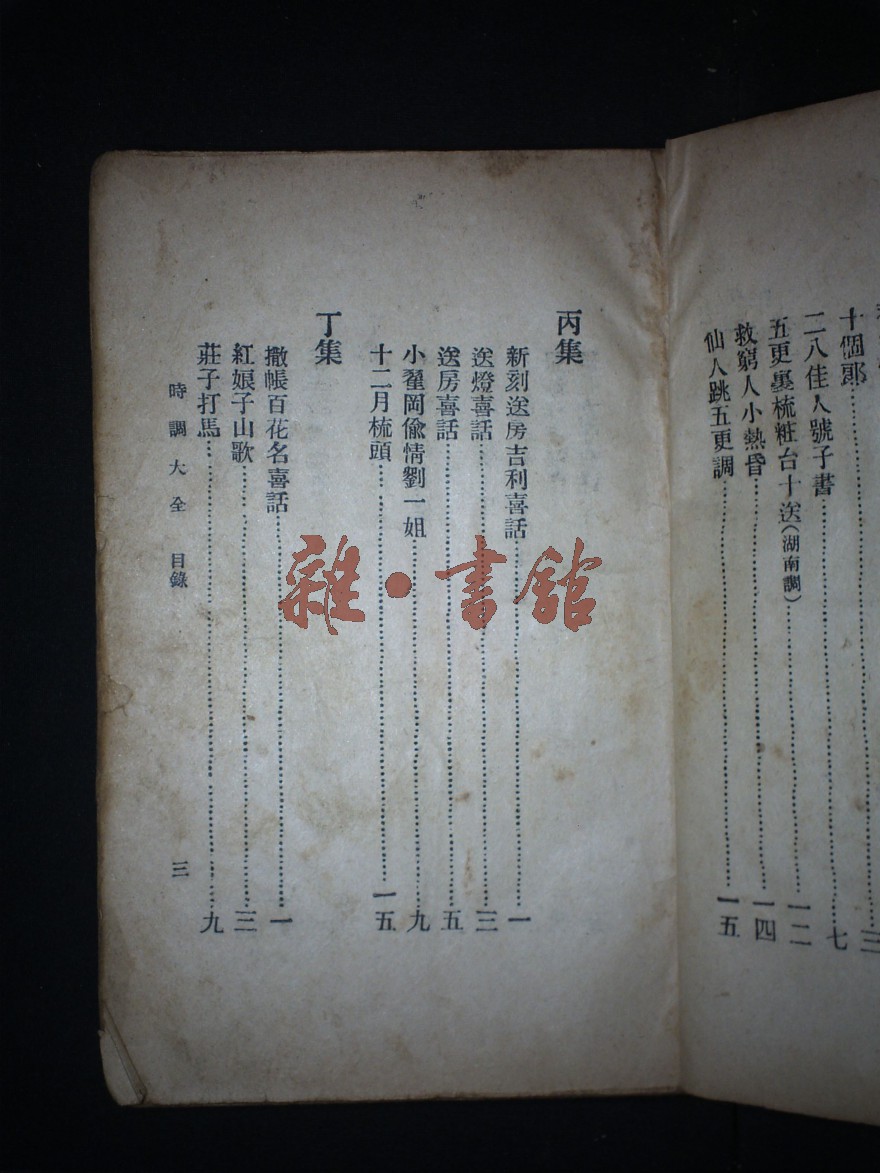 十個郞 三
二八佳人號子書 七
五更裏梳粧台十送（湖南調） 一二
救窮人小熱昏 一四
仙人跳五更調 一五
丙集
新刻送房吉利喜話 一
送燈喜話 三
送房喜話 五
小翟岡偸情劉一姐 九
十二月梳頭 一五
丁集
撒帳百花名喜話 一
紅娘子山歌 三
莊子打馬 九
時調大全 目錄 三
雜·書館